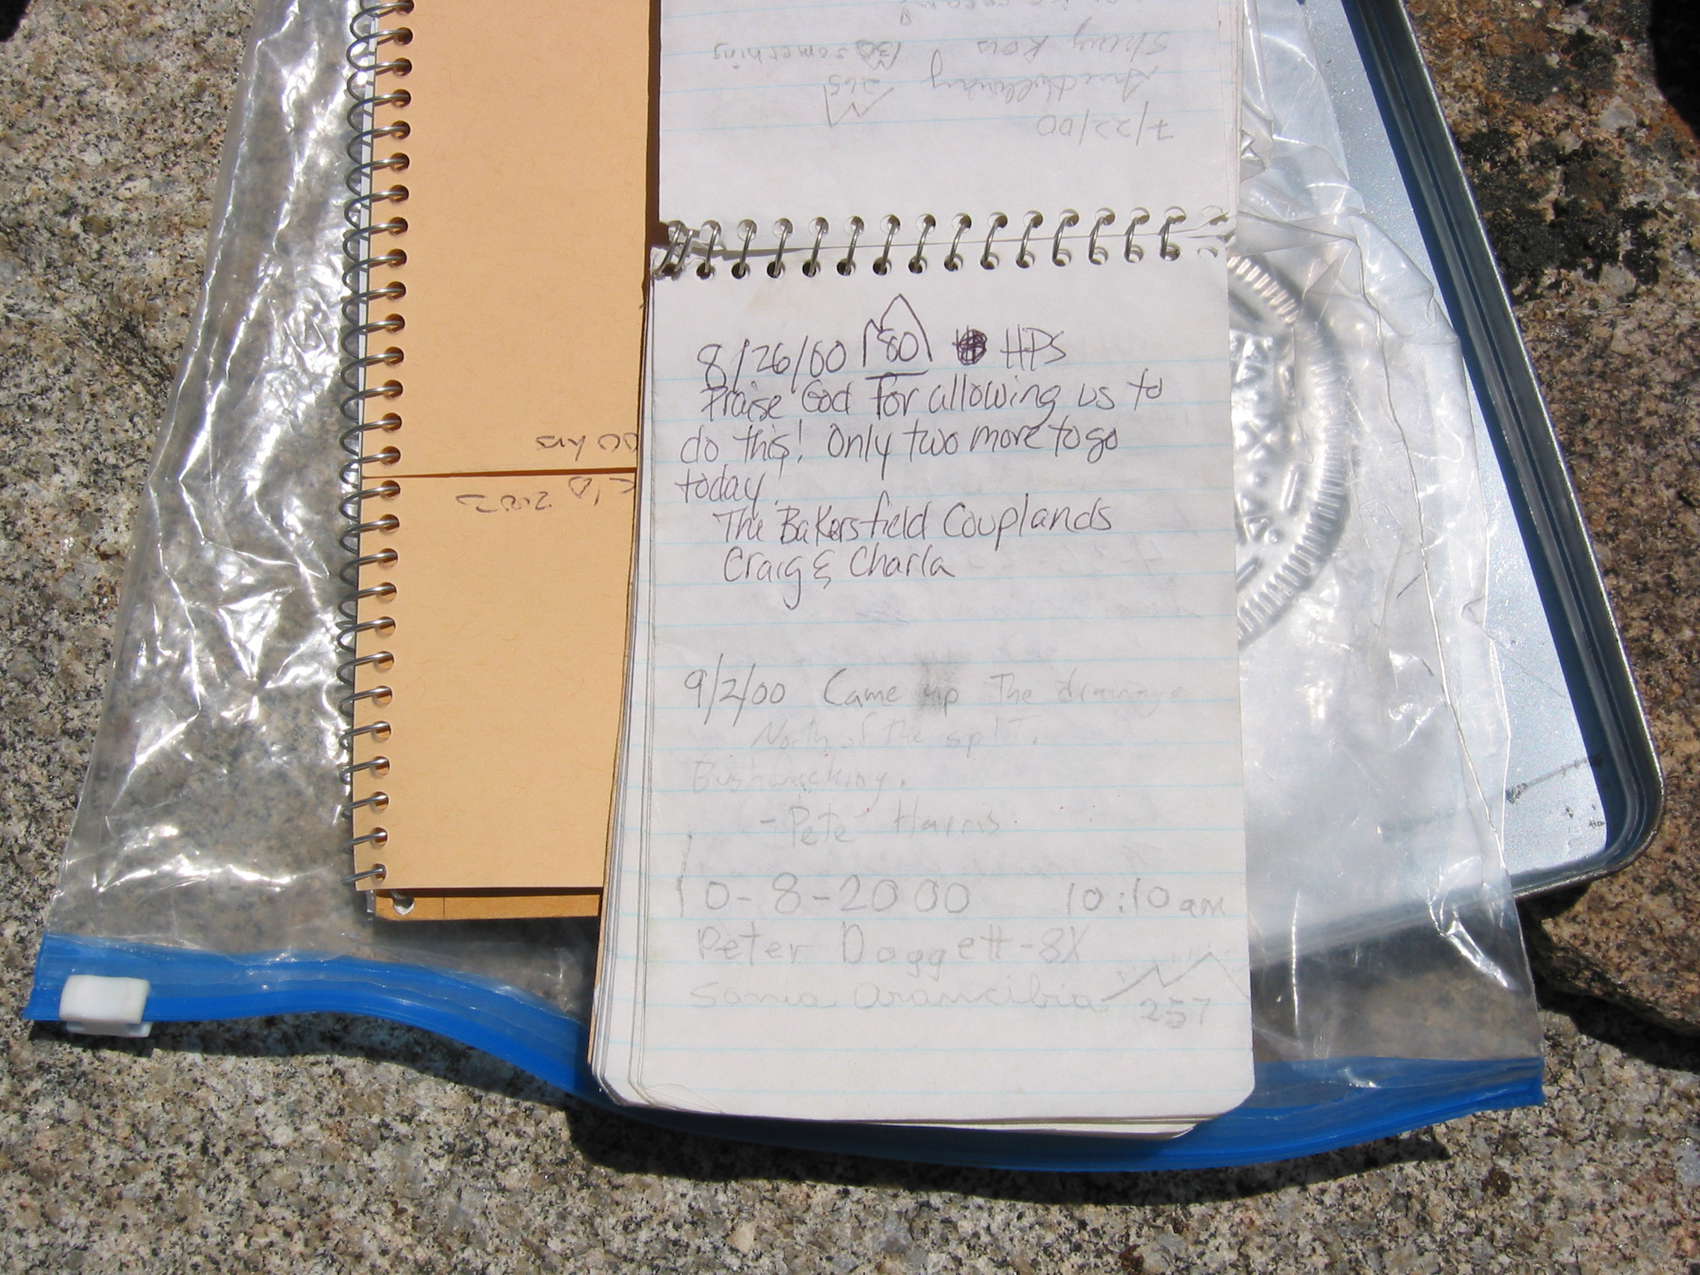 7/22/00
265
something
00 hrs
8/26/00 80 HPS
Praise God for allowing us to
do this! Only two more to go
today.
The Bakersfield Couplands
Craig & Charla
9/2/00 Came up The drainage
North of the split.
Bushwacking.
- Pete Harris.
10-8-2000 10:10am
Peter Doggett-8X
Sonia Arancibia 257